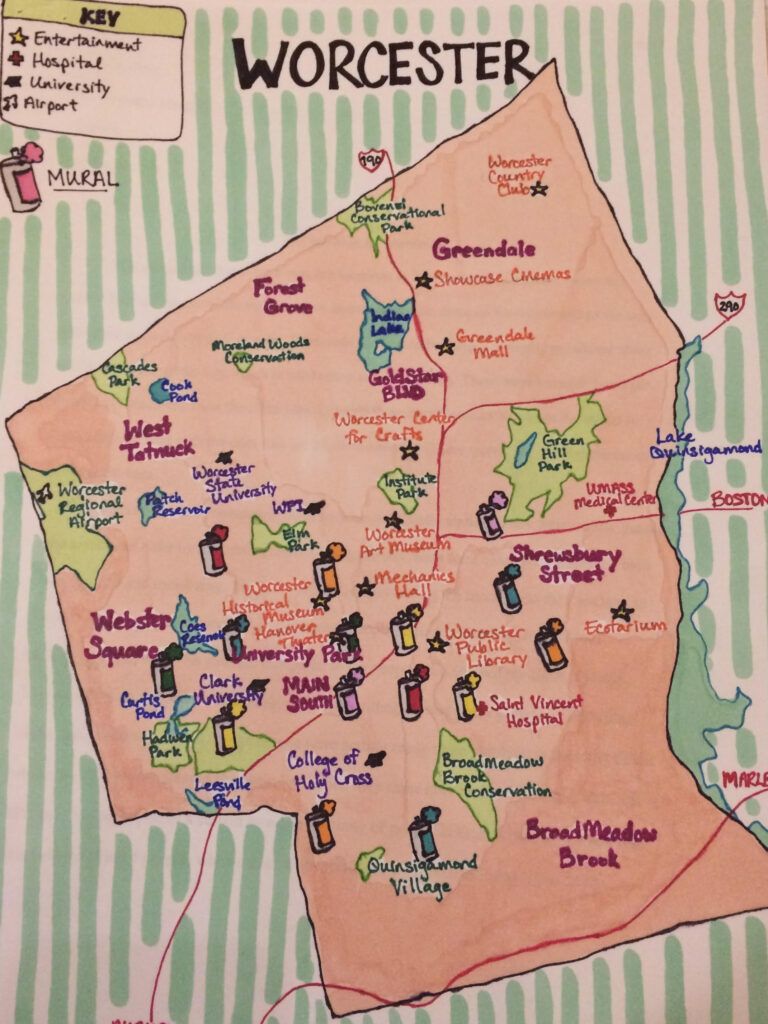 KEY
Entertainment
Hospital
University
Airport
MURAL
WORCESTER
190
Worcester
Country
Club
Bovenzi
Conservational
Park
Greendale
Showcase Cinemas
290
Forest
Grove
Indian
Lake
Moreland Woods
Conservation
Greendale
Mall
Cascades
Park
Cook
Pond
GoldStar
BLVD
West
Tatnuck
Worcester Center
for Crafts
Green
Hill
Park
Lake
Quinsigamond
Worcester
State
University
Institute
Park
UMASS
Medical Center
BOSTON
Worcester
Regional
Airport
Patch
Reservoir
WPI
Elm
Park
Worcester
Art Museum
Shrewsbury
Street
Mechanics
Hall
Worcester
Historical
Museum
Hanover
Theater
Webster
Square
Coes
Reservoir
University Park
Worcester
Public
Library
Ecotarium
Clark
University
MAIN
SOUTH
Curtis
Pond
Saint Vincent
Hospital
Hadwen
Park
College of
Holy Cross
BroadMeadow
Brook
Conservation
Leesville
Pond
MARLB
BroadMeadow
Brook
Quinsigamond
Village